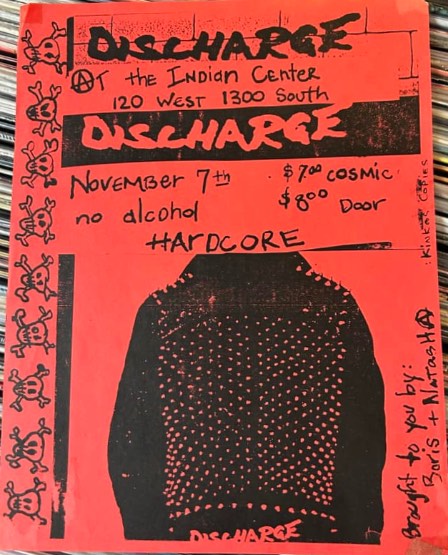 DISCHARGE
AT the INDIAN CENTER
120 WEST 1300 SOUTH
DISCHARGE
NOVEMBER 7th
$7.00 COSMIC
no alcohol
$8.00 DOOR
HARDCORE
KINKOS COPIES
Brought to you by:
Boris + NatashA
DISCHARGE